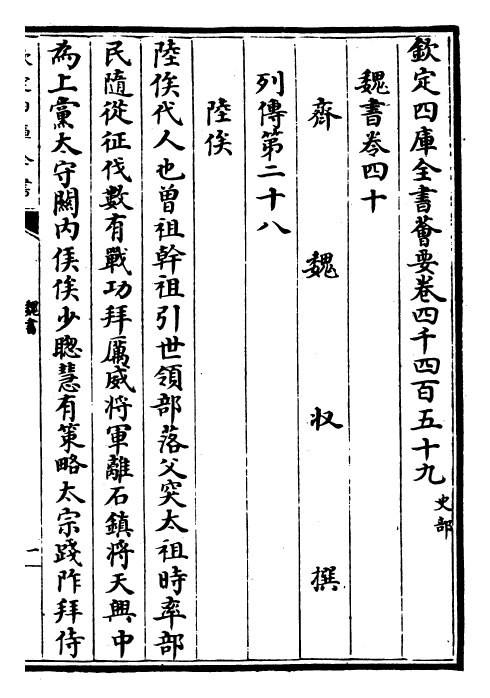 欽定四庫全書薈要卷四千四百五十九 史部
魏書卷四十
齊 魏 收 撰
列傳第二十八
陸俟
陸俟代人也曾祖幹祖引世領部落父突太祖時率部
民隨從征伐數有戰功拜厲威將軍離石鎮將天興中
為上黨太守關內侯俟少聰慧有策略太宗踐阼拜侍
魏書
一